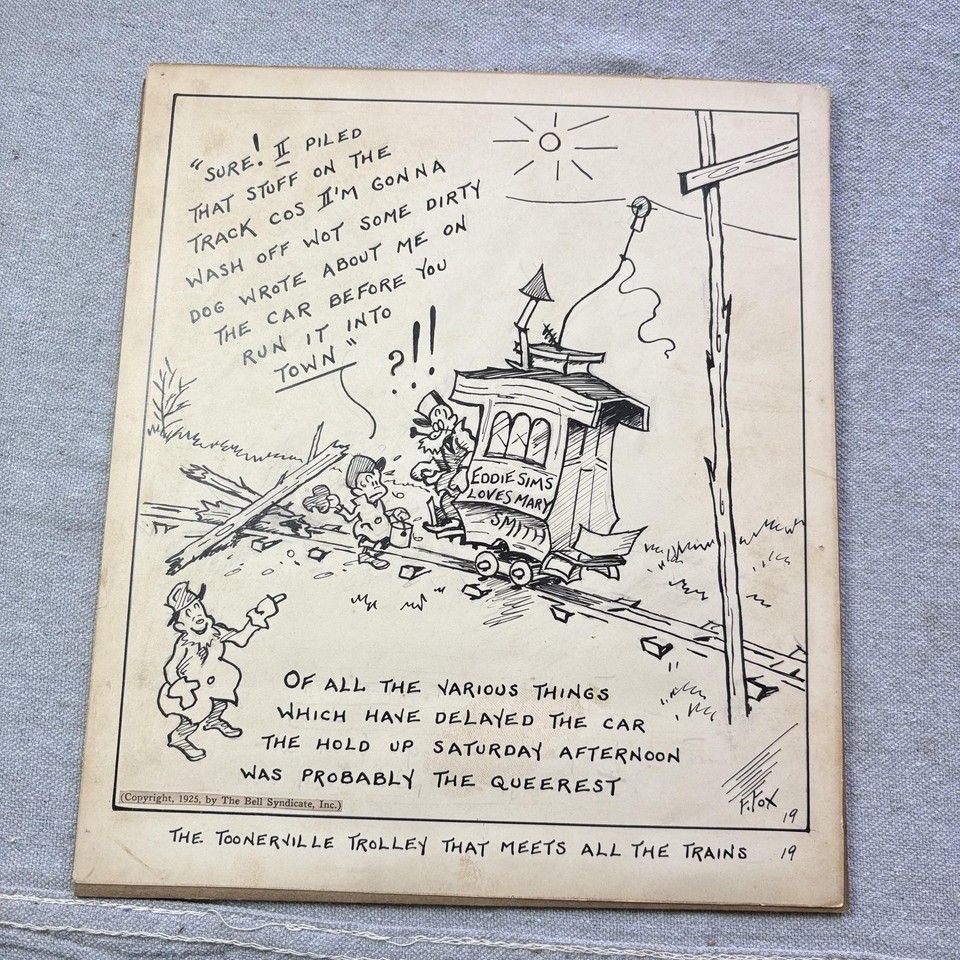 "SURE! II PILED
THAT STUFF ON THE
TRACK COS II'M GONNA
WASH OFF WOT SOME DIRTY
DOG WROTE ABOUT ME ON
THE CAR BEFORE YOU
RUN IT INTO
TOWN"
?!!
EDDIE SIMS
LOVES MARY
SMITH
OF ALL THE VARIOUS THINGS
WHICH HAVE DELAYED THE CAR
THE HOLD UP SATURDAY AFTERNOON
WAS PROBABLY THE QUEEREST
F. FOX
19
(Copyright, 1925, by The Bell Syndicate, Inc.)
THE TOONERVILLE TROLLEY THAT MEETS ALL THE TRAINS 19